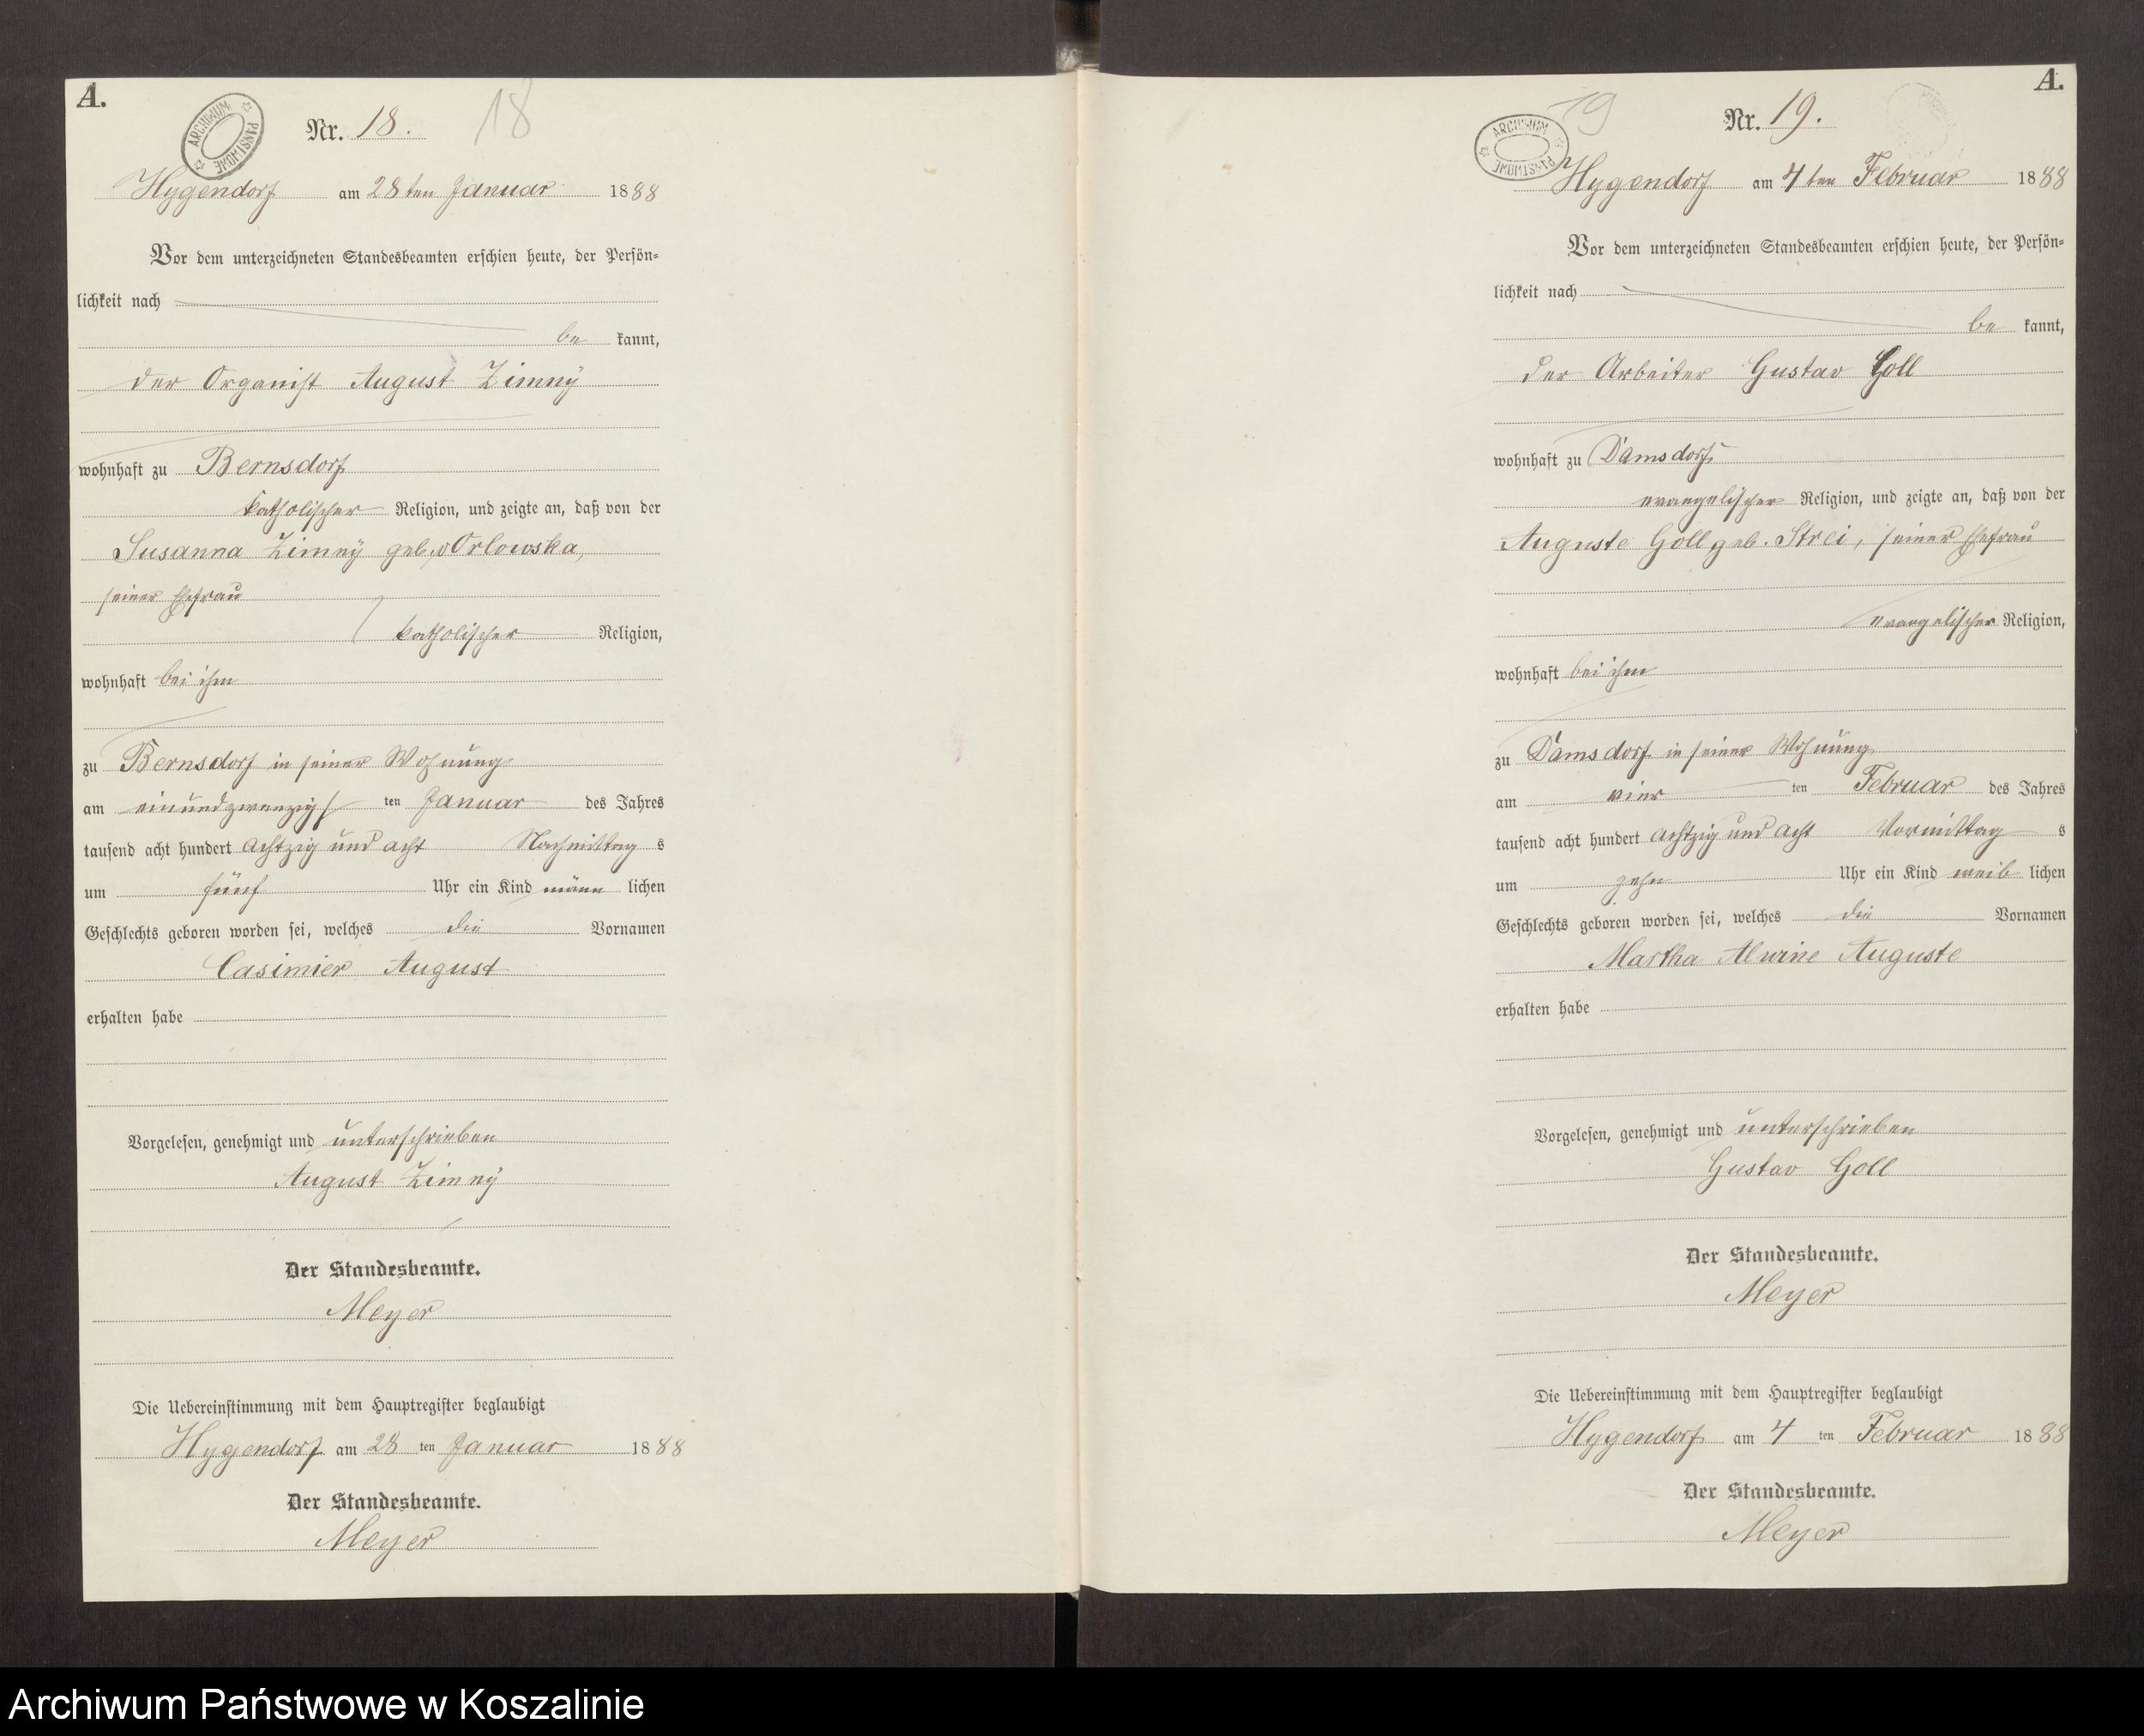 A.
ARCHIWUM PAŃSTWOWE
Nr. 18. 18
Hygendorf am 28ten Januar 1888
Vor dem unterzeichneten Standesbeamten erschien heute, der Persön=
lichkeit nach
be kannt,
der Organist August Zimny
wohnhaft zu Bernsdorf
katholischer Religion, und zeigte an, daß von der
Susanna Zimny geb. v Orlowska,
seiner Ehefrau
katholischer Religion,
wohnhaft bei ihm
zu Bernsdorf in seiner Wohnung
am einundzwanzigs ten Januar des Jahres
tausend acht hundert achtzig und acht Nachmittag s
um fünf Uhr ein Kind männ lichen
Geschlechts geboren worden sei, welches die Vornamen
Casimier August
erhalten habe
Vorgelesen, genehmigt und unterschrieben
August Zimny
Der Standesbeamte.
Meyer
Die Uebereinstimmung mit dem Hauptregister beglaubigt
Hygendorf am 28 ten Januar 1888
Der Standesbeamte.
Meyer
A.
ARCHIWUM PAŃSTWOWE
19 Nr. 19.
Hygendorf am 4ten Februar 1888
Vor dem unterzeichneten Standesbeamten erschien heute, der Persön=
lichkeit nach
be kannt,
der Arbeiter Gustav Goll
wohnhaft zu Damsdorf
evangelischer Religion, und zeigte an, daß von der
Auguste Goll geb. Strei, seiner Ehefrau
evangelischer Religion,
wohnhaft bei ihm
zu Damsdorf in seiner Wohnung
am vier ten Februar des Jahres
tausend acht hundert achtzig und acht Vormittag s
um zehn Uhr ein Kind weib lichen
Geschlechts geboren worden sei, welches die Vornamen
Martha Alwine Auguste
erhalten habe
Vorgelesen, genehmigt und unterschrieben
Gustav Goll
Der Standesbeamte.
Meyer
Die Uebereinstimmung mit dem Hauptregister beglaubigt
Hygendorf am 4 ten Februar 1888
Der Standesbeamte.
Meyer
Archiwum Państwowe w Koszalinie